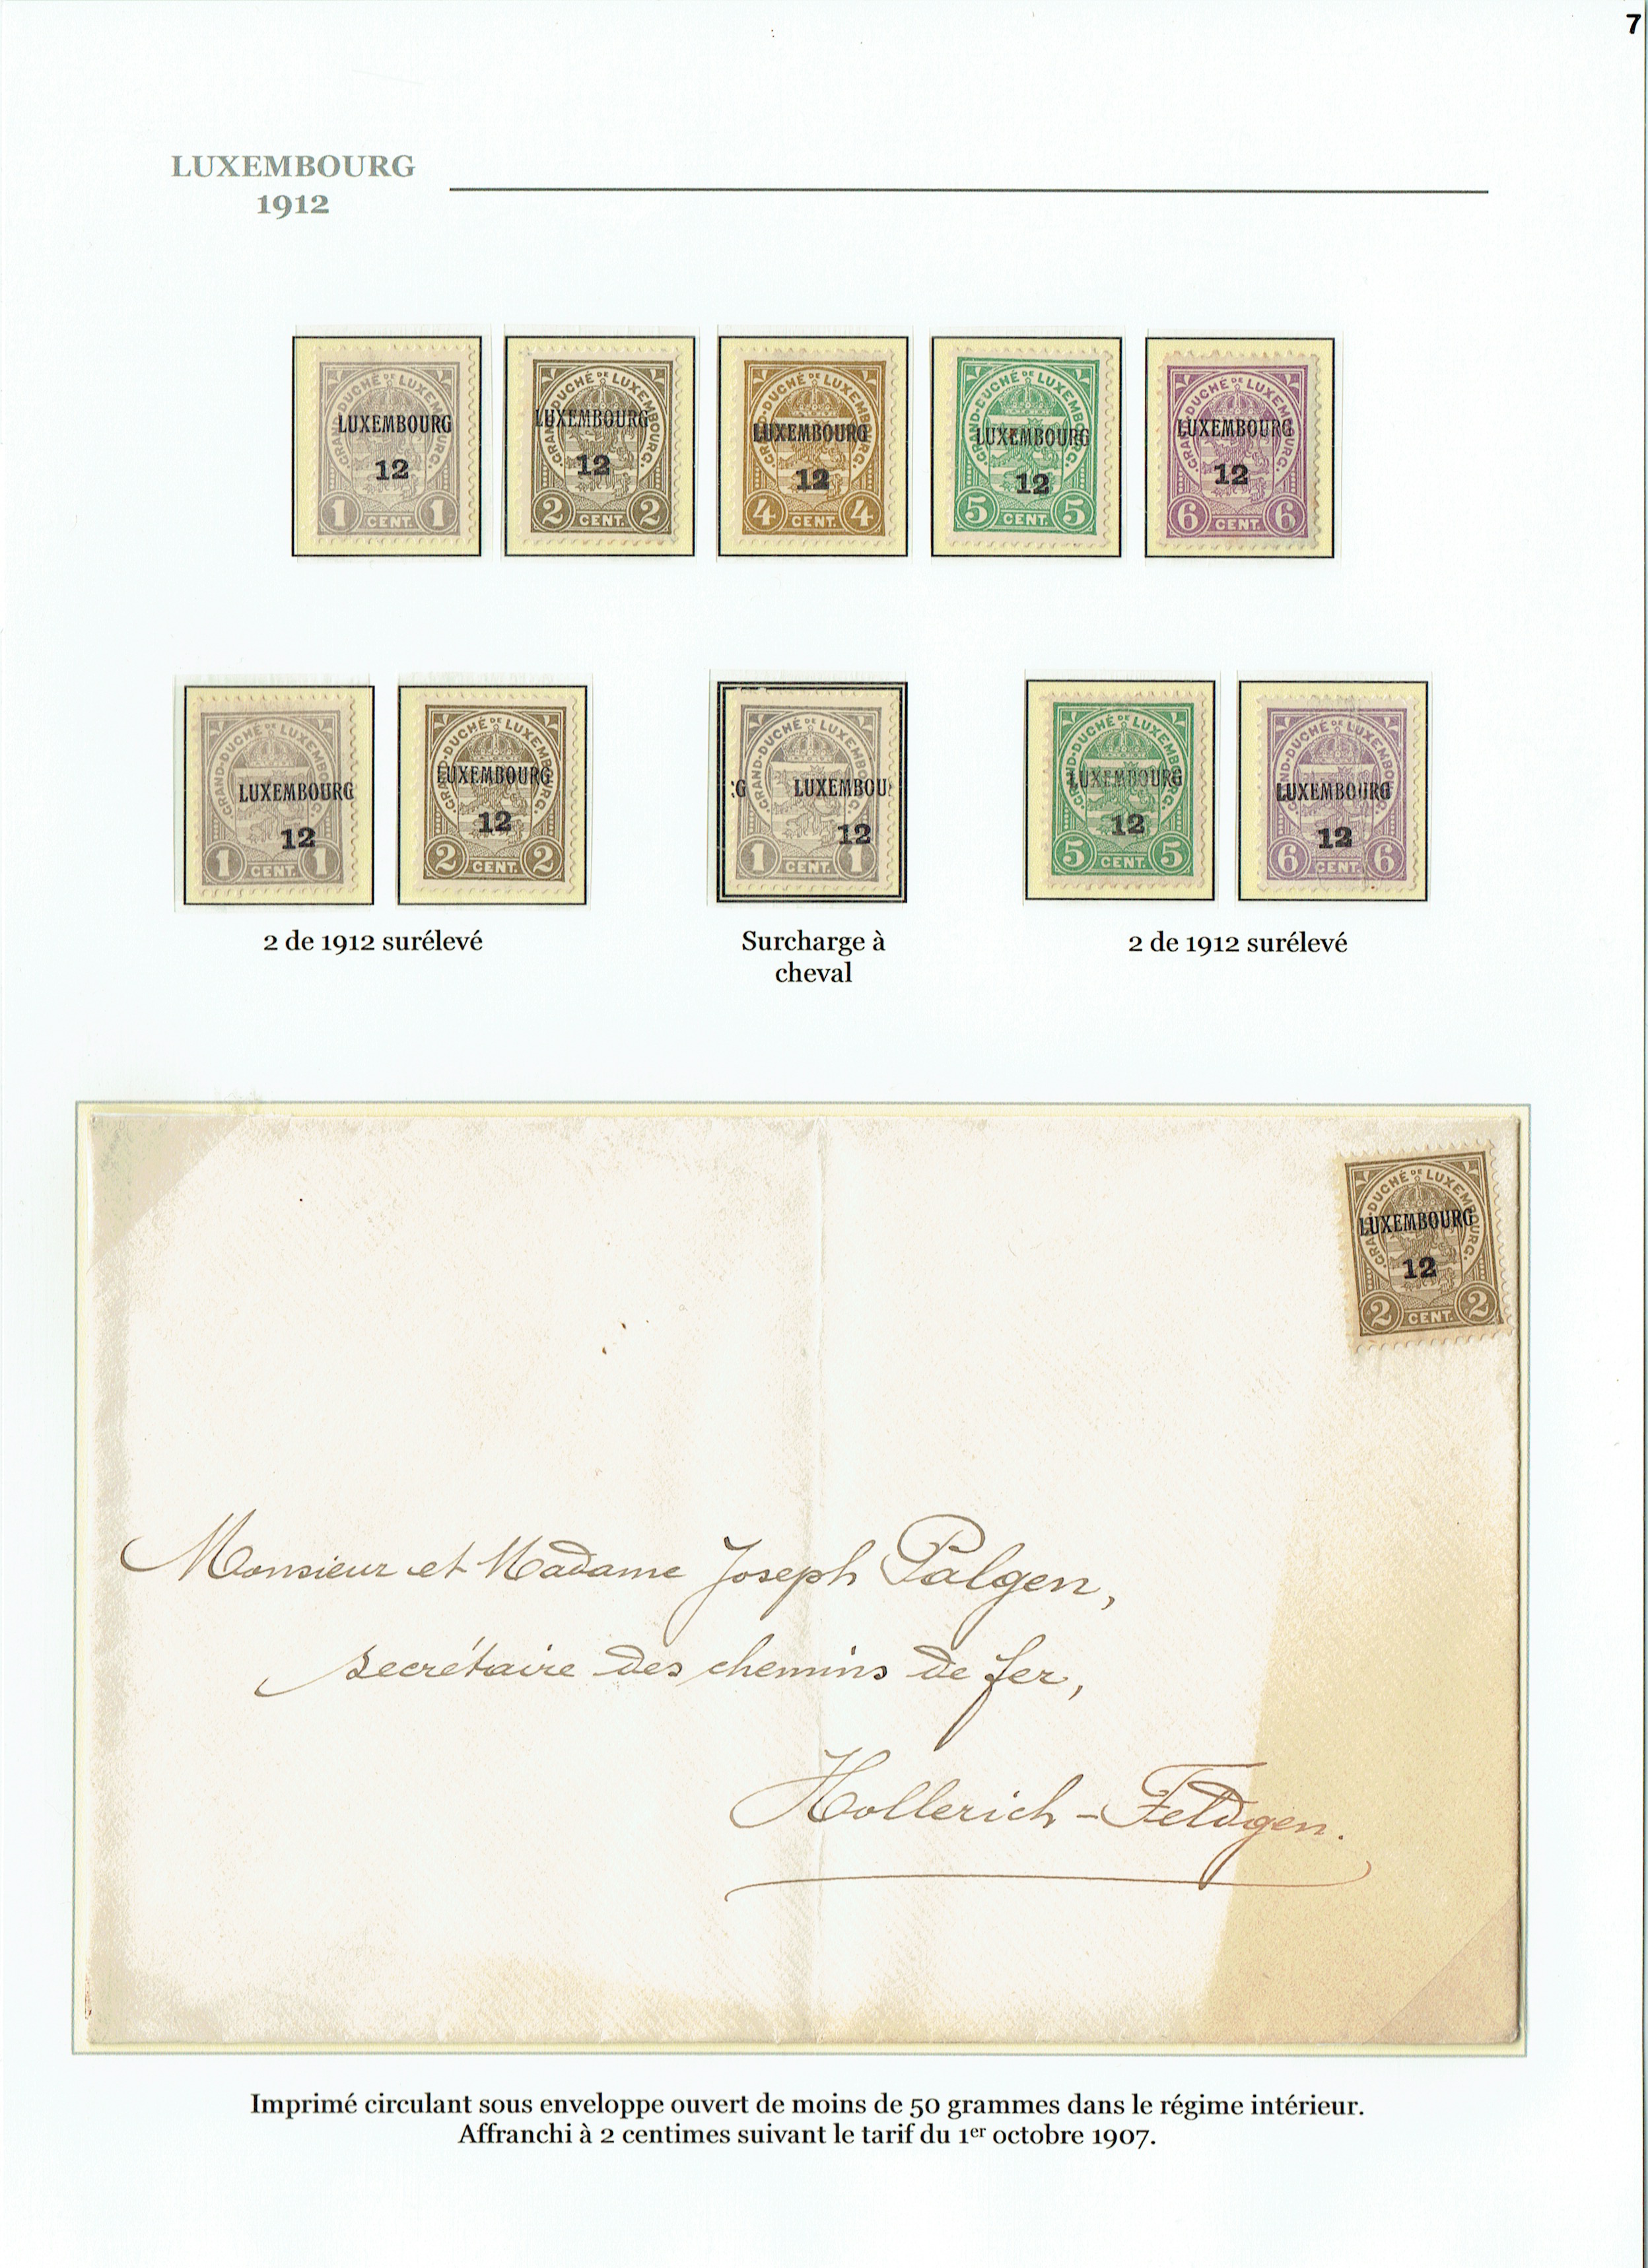 7
LUXEMBOURG
1912
GRAND-DUCHÉ DE LUXEMBOURG.
LUXEMBOURG
12
1 CENT. 1
GRAND-DUCHÉ DE LUXEMBOURG.
LUXEMBOURG
12
2 CENT. 2
GRAND-DUCHÉ DE LUXEMBOURG.
LUXEMBOURG
12
4 CENT. 4
GRAND-DUCHÉ DE LUXEMBOURG.
LUXEMBOURG
12
5 CENT. 5
GRAND-DUCHÉ DE LUXEMBOURG.
LUXEMBOURG
12
6 CENT. 6
GRAND-DUCHÉ DE LUXEMBOURG.
LUXEMBOURG
12
1 CENT. 1
GRAND-DUCHÉ DE LUXEMBOURG.
LUXEMBOURG
12
2 CENT. 2
GRAND-DUCHÉ DE LUXEMBOURG.
G LUXEMBOU
12
1 CENT. 1
GRAND-DUCHÉ DE LUXEMBOURG.
LUXEMBOURG
12
5 CENT. 5
GRAND-DUCHÉ DE LUXEMBOURG.
LUXEMBOURG
12
6 CENT. 6
2 de 1912 surélevé
Surcharge à
cheval
2 de 1912 surélevé
GRAND-DUCHÉ DE LUXEMBOURG.
LUXEMBOURG
12
2 CENT. 2
Monsieur et Madame Joseph Palgen,
secrétaire des chemins de fer,
Hollerich-Feldgen.
Imprimé circulant sous enveloppe ouvert de moins de 50 grammes dans le régime intérieur.
Affranchi à 2 centimes suivant le tarif du 1er octobre 1907.